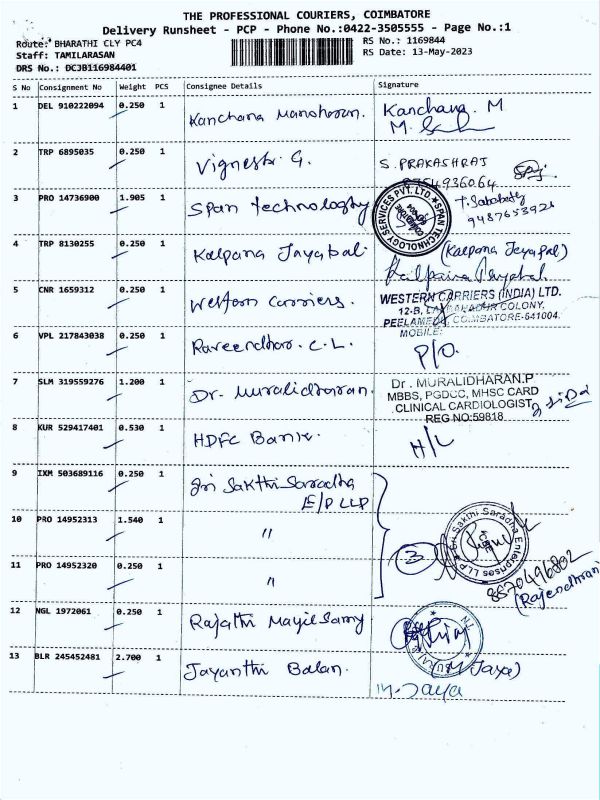 THE PROFESSIONAL COURIERS, COIMBATORE
Delivery Runsheet - PCP - Phone No.:0422-3505555 - Page No.:1
Route: BHARATHI CLY PC4
RS No.: 1169844
Staff: TAMILARASAN
RS Date: 13-May-2023
DRS No.: DCJB116984401
S No Consignment No Weight PCS Consignee Details Signature
1 DEL 910222094 0.250 1 Kanchana Manoharan. Kanchana. M
M.
2 TRP 6895035 0.250 1 Vignesh G. S. PRAKASHRAJ
9754936064
3 PRO 14736900 1.905 1 Span Technology
SPAN TECHNOLOGY SERVICES PVT. LTD.
9487653921
4 TRP 8130255 0.250 1 Kalpana Jayabal (Kalpana Jeyapal)
5 CNR 1659312 0.250 1 Western carriers. WESTERN CARRIERS (INDIA) LTD.
12-B, COLONY,
PEELAMEDU, COIMBATORE-641004.
MOBILE:
6 VPL 217843038 0.250 1 Raveendhar. C.L. P/O.
7 SLM 319559276 1.200 1 Dr. Muralidharan. Dr. MURALIDHARAN.P
MBBS, PGDCC, MHSC CARD
CLINICAL CARDIOLOGIST
REG NO:59818
8 KUR 529417401 0.530 1 HDFC Bank. H/L
9 IXM 503689116 0.250 1 Sri Sakthi Saradha
E/P LLP
10 PRO 14952313 1.540 1 "
Sri Sakthi Saradha Enterprises LLP
3
11 PRO 14952320 0.250 1 "
8870496802
(Rajendhran)
12 NGL 1972061 0.250 1 Rajathi Mayilsamy
13 BLR 245452481 2.700 1 Jayanthi Balan. (M Jaya)
M. Jaya